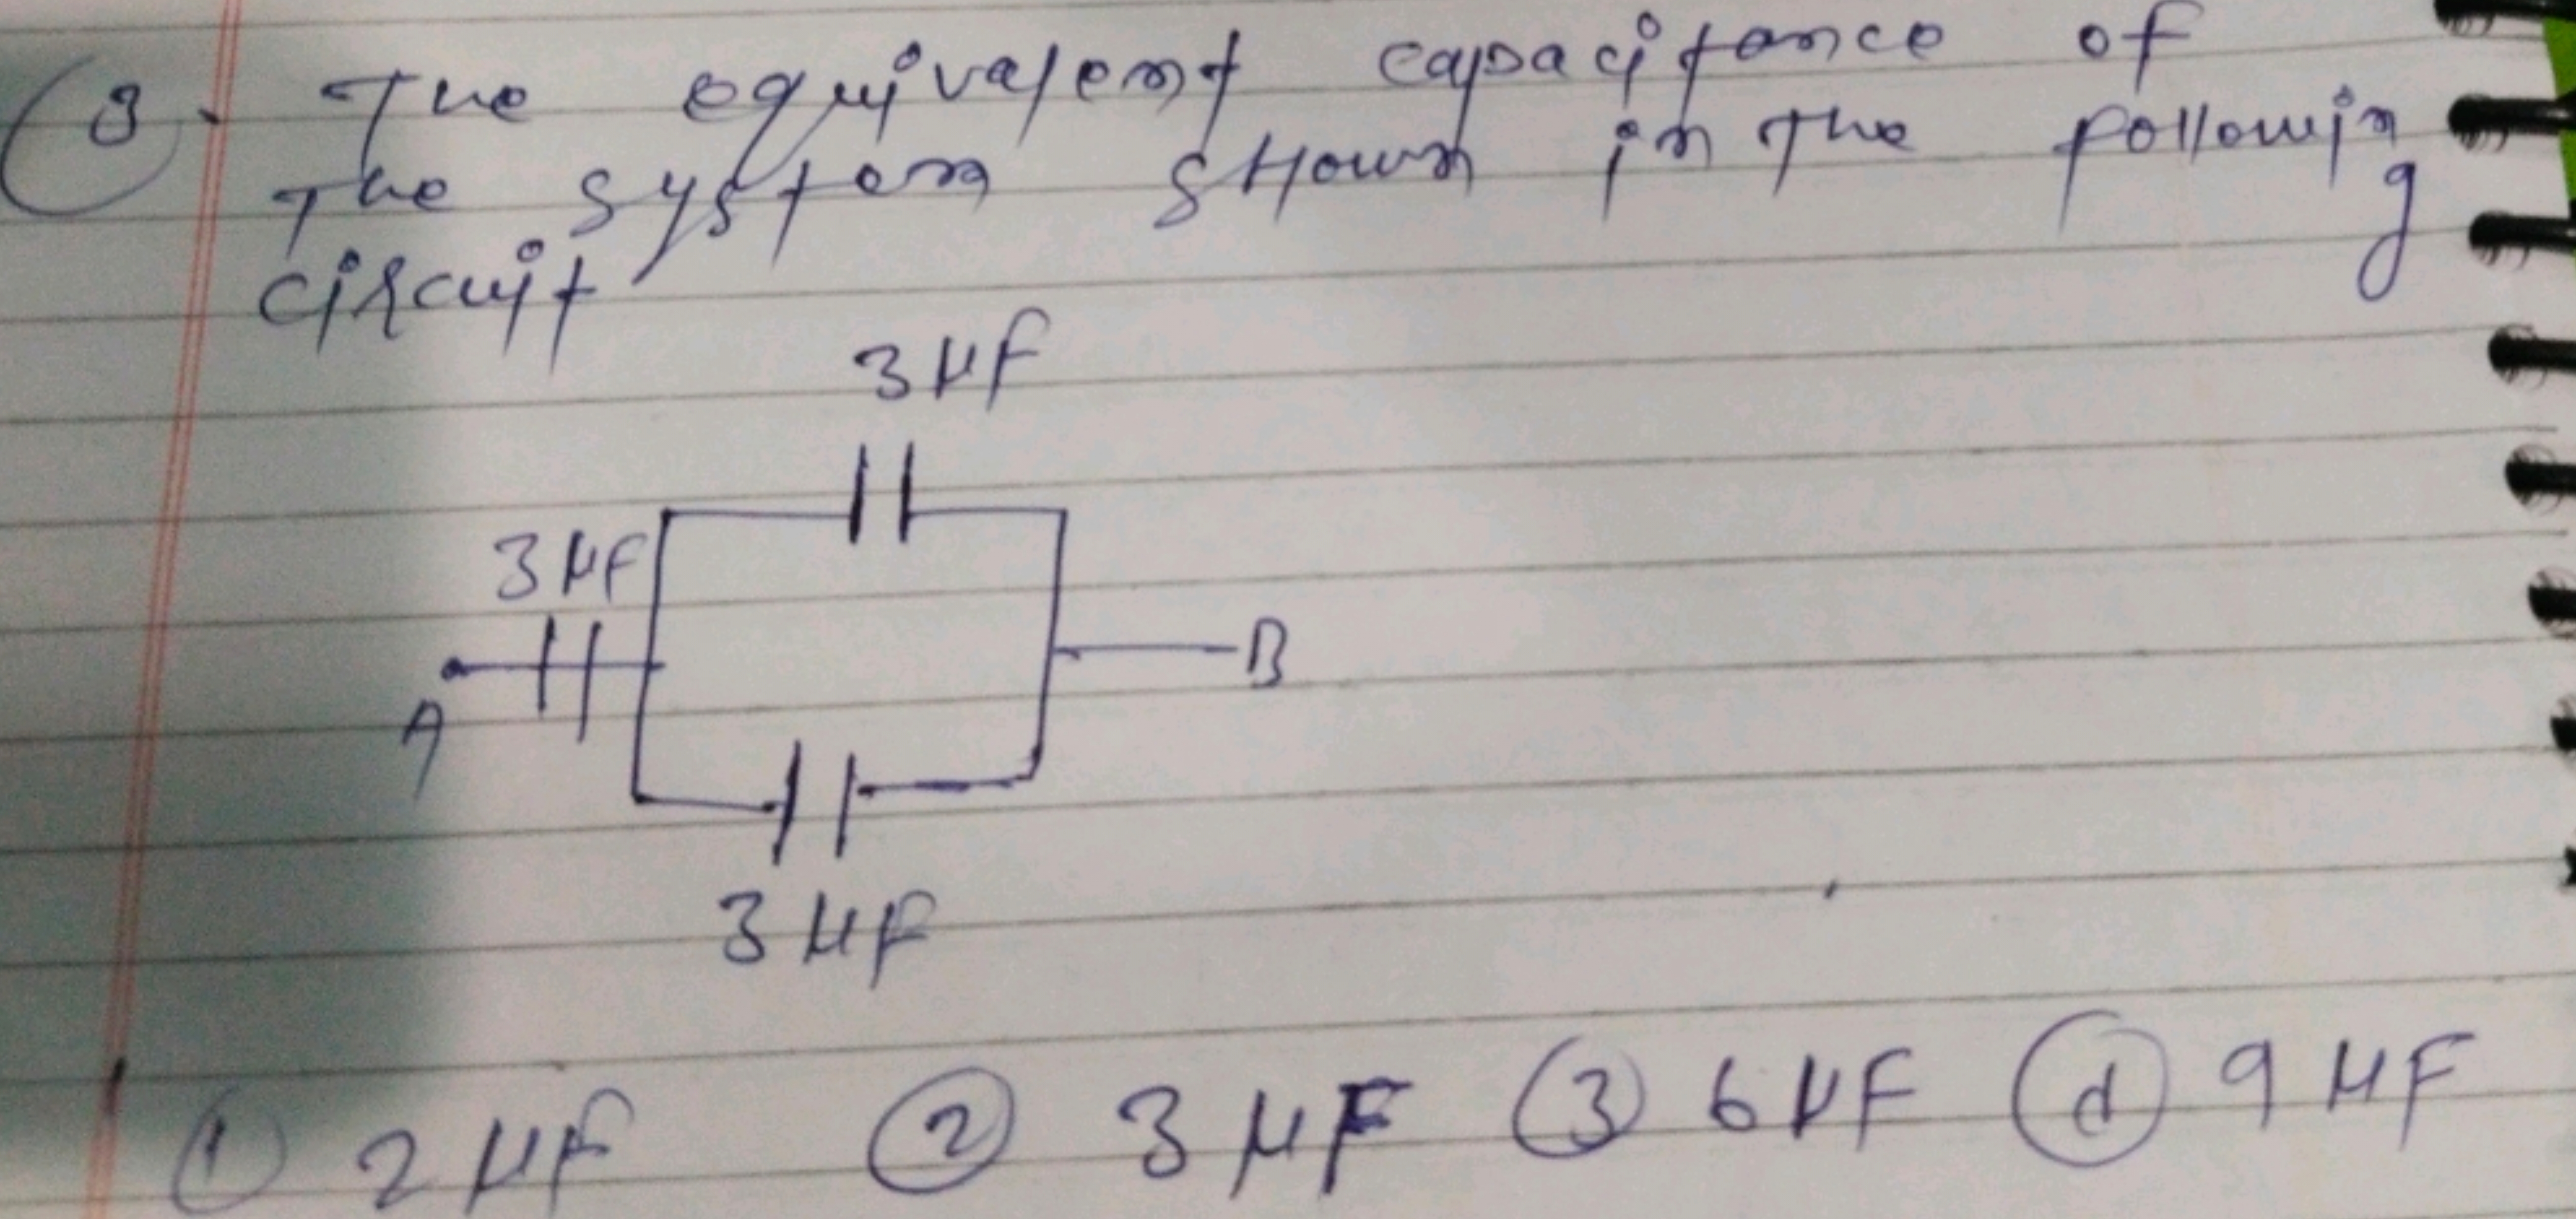 8. The equivalent capacitance of
the system shown in the following
circuit
3 μF
3 μF
A
B
3 μF
1 2 μF 2 3 μF 3 6 μF d 9 μF